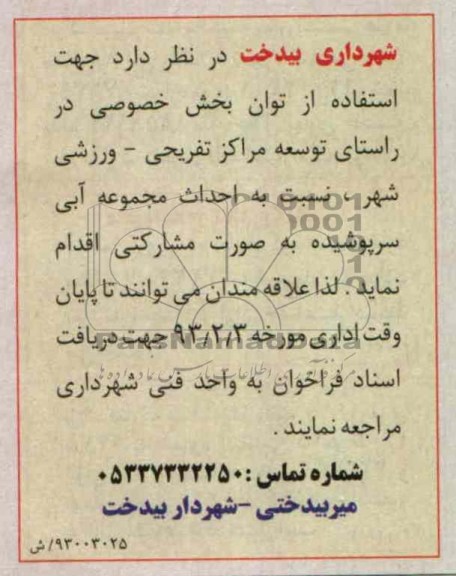 شهرداری بیدخت در نظر دارد جهت
استفاده از توان بخش خصوصی در
راستای توسعه مراکز تفریحی - ورزشی
شهر، نسبت به احداث مجموعه آبی
سرپوشیده به صورت مشارکتی اقدام
نماید. لذا علاقه مندان می توانند تا پایان
وقت اداری مورخه ۹۳/۲/۳ جهت دریافت
اسناد فراخوان به واحد فنی شهرداری
مراجعه نمایند.
شماره تماس: ۰۵۳۳۷۷۳۲۲۵۰
میربیدختی - شهردار بیدخت
۹۳۰۰۳۰۲۵/ش
ParsNamadData